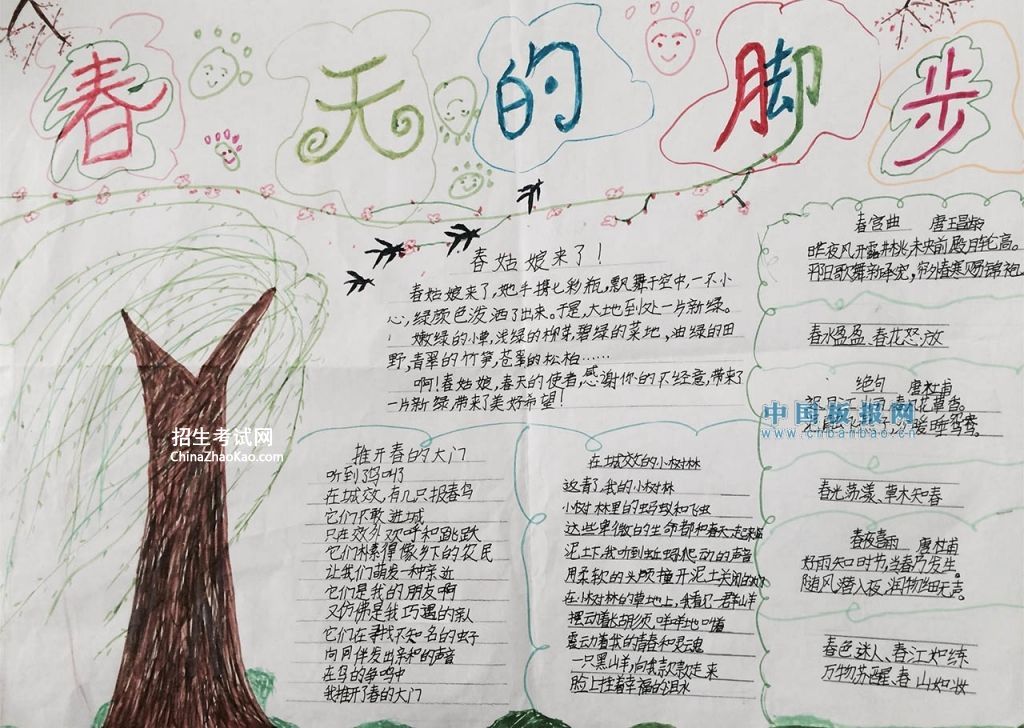 春天的脚步
春姑娘来了!
春姑娘来了,她手携七彩瓶,飘舞于空中,一不小
心,绿颜色泼洒了出来。于是,大地到处一片新绿。
嫩绿的小草,浅绿的柳芽,碧绿的菜地,油绿的田
野,青翠的竹笋,苍翠的松柏……
啊!春姑娘,春天的使者,感谢你的不经意,带来了
一片新绿,带来了美好希望!
推开春的大门
听到了鸟叫了
在城效,有几只报春鸟
它们不敢进城
只在效外欢呼和跳跃
它们朴素得像乡下的农民
让我们萌发一种亲近
它们是我的朋友啊
又仿佛是我巧遇的亲人
它们在寻找不知名的虫子
向同伴发出亲和的声音
在鸟的争鸣中
我推开了春的大门
在城效的小树林
这青了我的小树林
小树林里的蚂蚁和飞虫
这些卑微的生命都和春天一起
泥土下,我听到蚯蚓爬动的声音
用柔软的头颅撞开泥土关闭的
在小树林的草地上,我看见一群山羊
摆动着长胡须,咩咩地叫着
震动着我的青春和灵魂
一只黑山羊,向我款款走来
脸上挂着幸福的泪水
春宫曲 唐王昌龄
昨夜风开露井桃,未央前殿月轮高。
平阳歌舞新承宠,帘外春寒赐锦袍。
春水盈盈、春花怒放
绝句 唐杜甫
迟日江山丽,春风花草香。
暖睡鸳鸯。
春光荡漾、草木知春
春夜喜雨 唐杜甫
好雨知时节,当春乃发生。
随风潜入夜,润物细无声。
春色迷人、春江如练
万物苏醒、春山如妆
招生考试网
ChinaZhaoKao.com
中国板报网
www.cnbanbao.cn